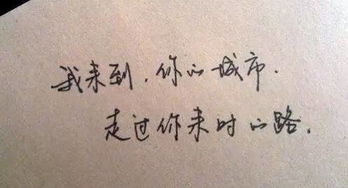 我来到.你的城市.
走过你来时的路.